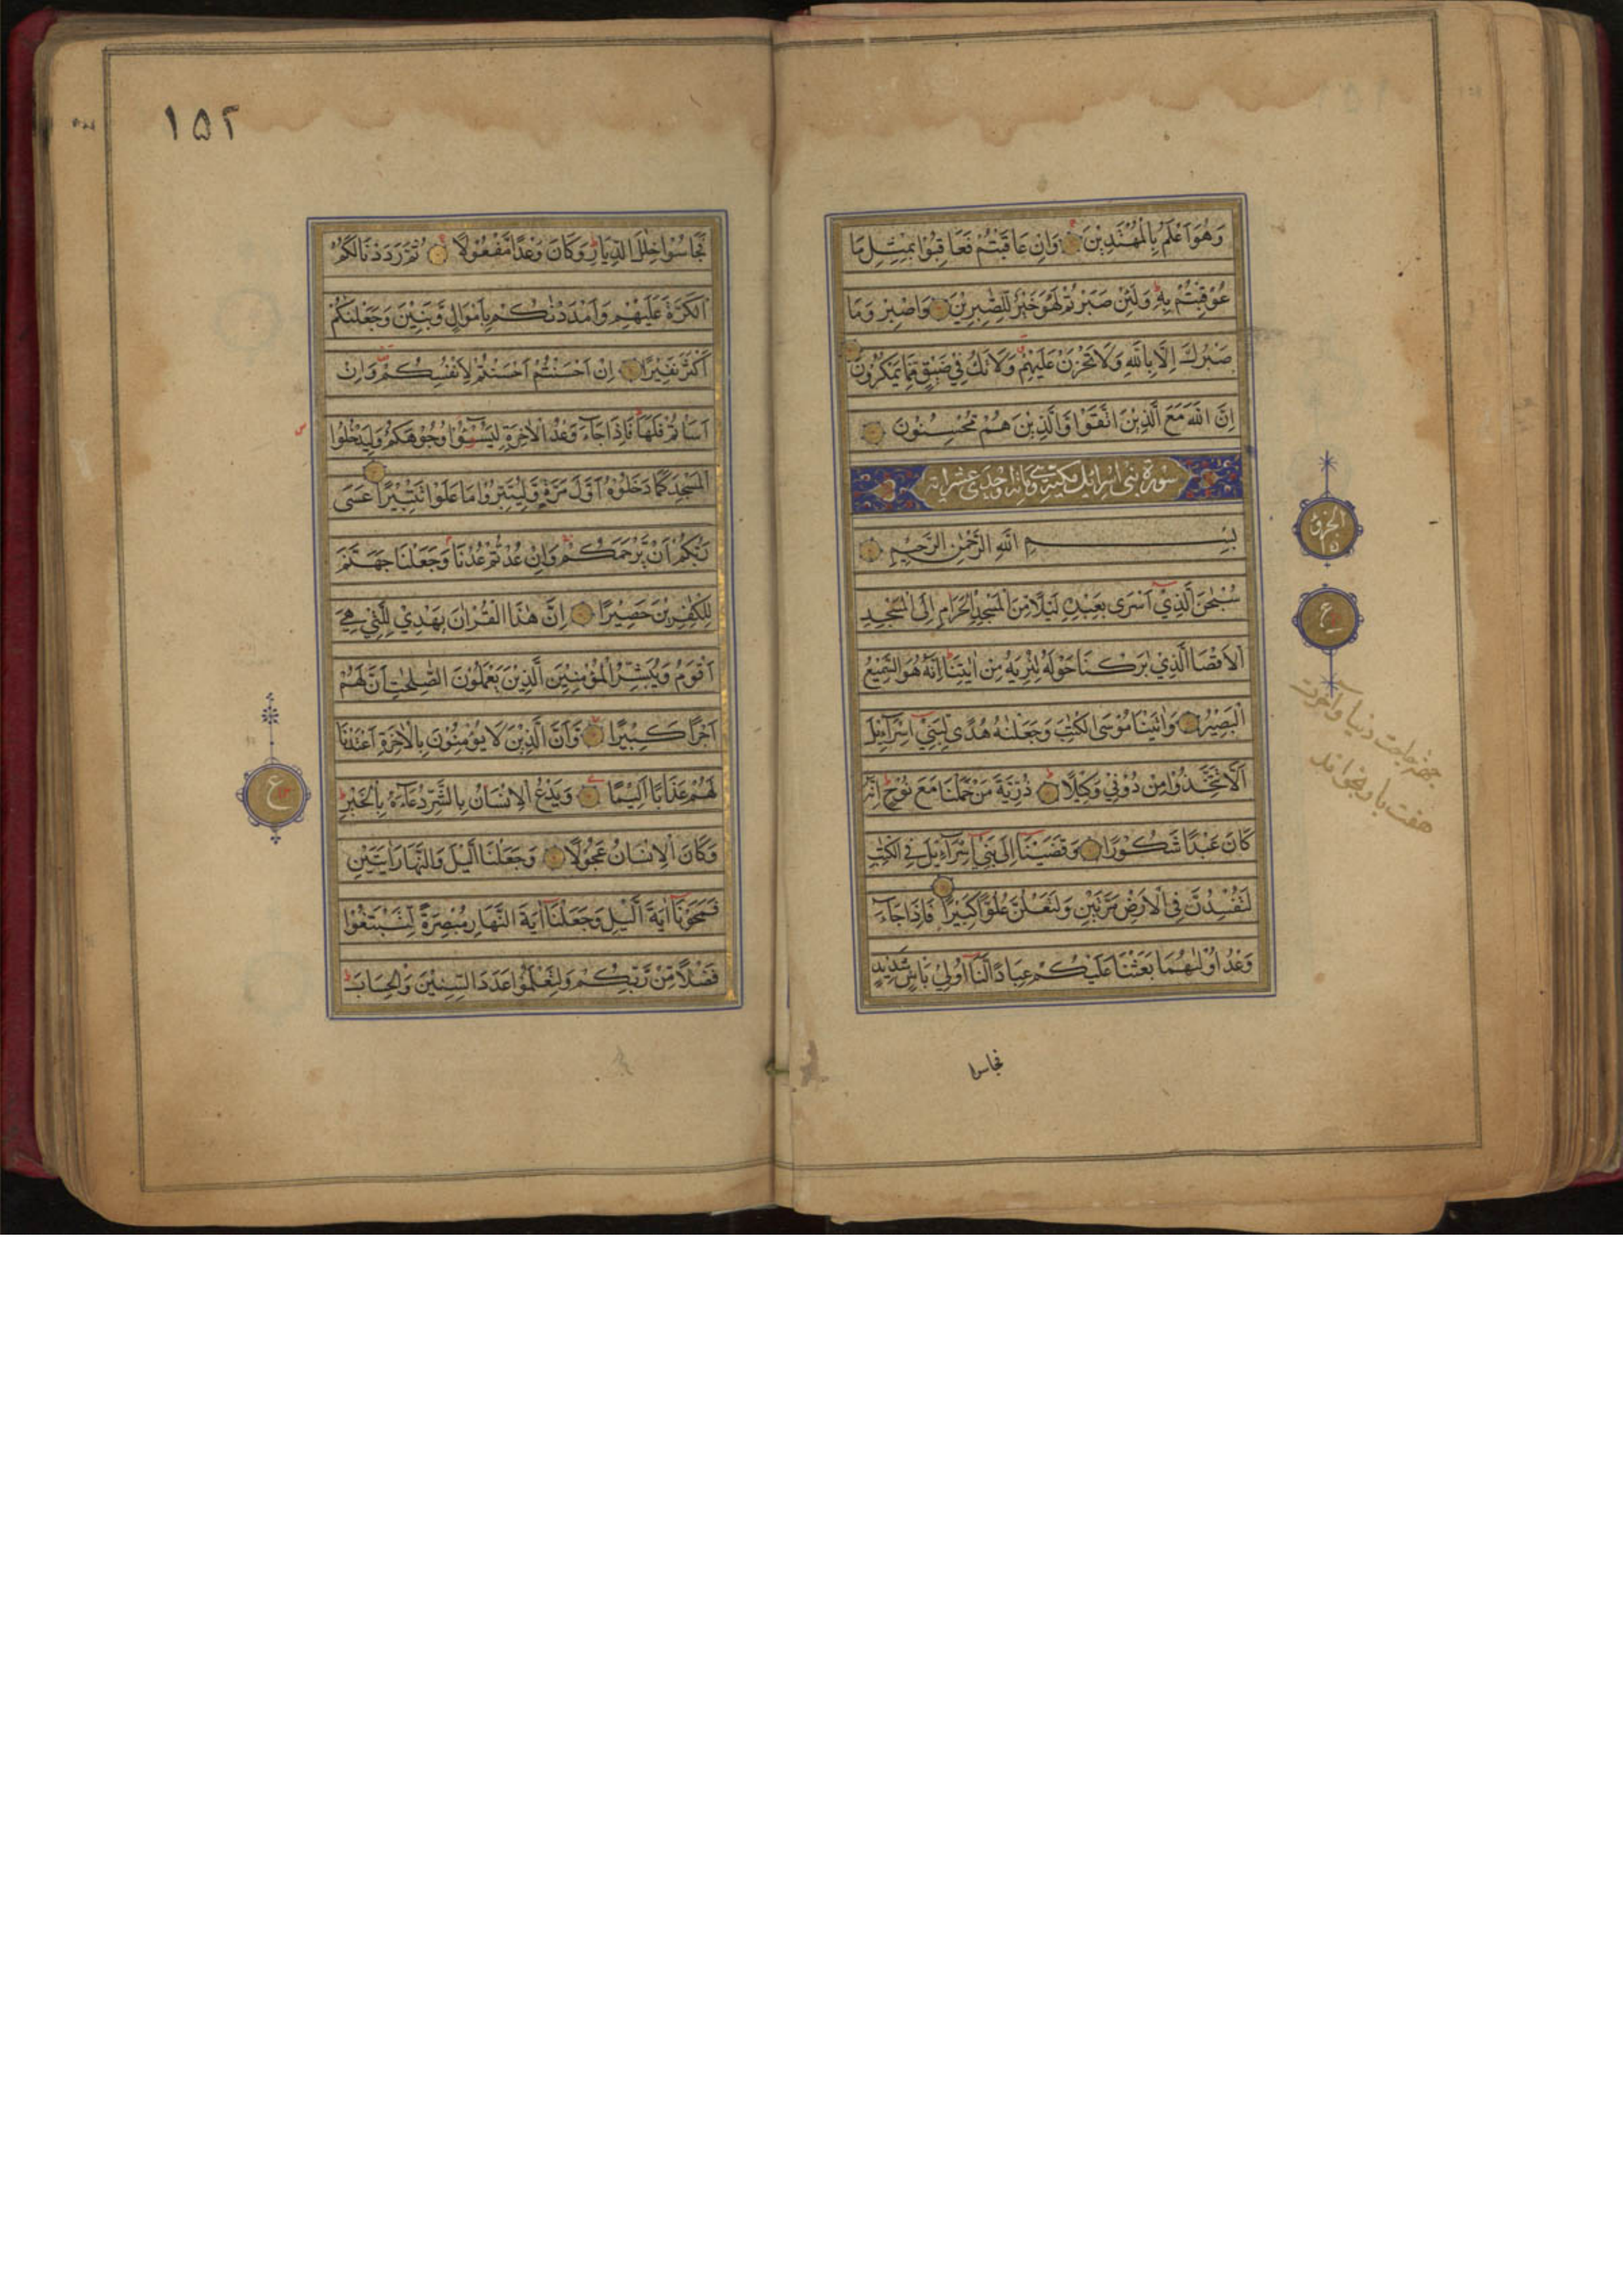 وَهُوَ اَعْلَمُ بِالْمُهْتَدِيْنَ وَاِنْ عَاقَبْتُمْ فَعَاقِبُوْا بِمِثْلِ مَا
عُوْقِبْتُمْ بِهٖ وَلَئِنْ صَبَرْتُمْ لَهُوَ خَيْرٌ لِّلصّٰبِرِيْنَ وَاصْبِرْ وَمَا
صَبْرُكَ اِلَّا بِاللّٰهِ وَلَا تَحْزَنْ عَلَيْهِمْ وَلَا تَكُ فِيْ ضَيْقٍ مِّمَّا يَمْكُرُوْنَ
اِنَّ اللّٰهَ مَعَ الَّذِيْنَ اتَّقَوْا وَّالَّذِيْنَ هُمْ مُّحْسِنُوْنَ
سورة بنى اسرائيل مكية وهى مائة واحدى عشر اية
بِسْمِ اللّٰهِ الرَّحْمٰنِ الرَّحِيْمِ
سُبْحٰنَ الَّذِيْٓ اَسْرٰى بِعَبْدِهٖ لَيْلًا مِّنَ الْمَسْجِدِ الْحَرَامِ اِلَى الْمَسْجِدِ
الْاَقْصَا الَّذِيْ بٰرَكْنَا حَوْلَهٗ لِنُرِيَهٗ مِنْ اٰيٰتِنَا اِنَّهٗ هُوَ السَّمِيْعُ
الْبَصِيْرُ وَاٰتَيْنَا مُوْسَى الْكِتٰبَ وَجَعَلْنٰهُ هُدًى لِّبَنِيْٓ اِسْرَآئِيْلَ
اَلَّا تَتَّخِذُوْا مِنْ دُوْنِيْ وَكِيْلًا ذُرِّيَّةَ مَنْ حَمَلْنَا مَعَ نُوْحٍ اِنَّهٗ
كَانَ عَبْدًا شَكُوْرًا وَقَضَيْنَآ اِلٰى بَنِيْٓ اِسْرَآءِيْلَ فِى الْكِتٰبِ
لَتُفْسِدُنَّ فِى الْاَرْضِ مَرَّتَيْنِ وَلَتَعْلُنَّ عُلُوًّا كَبِيْرًا فَاِذَا جَآءَ
وَعْدُ اُوْلٰىهُمَا بَعَثْنَا عَلَيْكُمْ عِبَادًا لَّنَآ اُولِيْ بَاْسٍ شَدِيْدٍ
فجاسوا
الجزو
١٥
ع
حاجت دنيا وآخرت
هفت بار بخواند
١٥٢
فَجَاسُوْا خِلٰلَ الدِّيَارِ وَكَانَ وَعْدًا مَّفْعُوْلًا ثُمَّ رَدَدْنَا لَكُمُ
الْكَرَّةَ عَلَيْهِمْ وَاَمْدَدْنٰكُمْ بِاَمْوَالٍ وَّبَنِيْنَ وَجَعَلْنٰكُمْ
اَكْثَرَ نَفِيْرًا اِنْ اَحْسَنْتُمْ اَحْسَنْتُمْ لِاَنْفُسِكُمْ وَاِنْ
اَسَاْتُمْ فَلَهَا فَاِذَا جَآءَ وَعْدُ الْاٰخِرَةِ لِيَسُوْٓءٗا وُجُوْهَكُمْ وَلِيَدْخُلُوا
الْمَسْجِدَ كَمَا دَخَلُوْهُ اَوَّلَ مَرَّةٍ وَّلِيُتَبِّرُوْا مَا عَلَوْا تَتْبِيْرًا عَسٰى
رَبُّكُمْ اَنْ يَّرْحَمَكُمْ وَاِنْ عُدْتُّمْ عُدْنَا وَجَعَلْنَا جَهَنَّمَ
لِلْكٰفِرِيْنَ حَصِيْرًا اِنَّ هٰذَا الْقُرْاٰنَ يَهْدِيْ لِلَّتِيْ هِيَ
اَقْوَمُ وَيُبَشِّرُ الْمُؤْمِنِيْنَ الَّذِيْنَ يَعْمَلُوْنَ الصّٰلِحٰتِ اَنَّ لَهُمْ
اَجْرًا كَبِيْرًا وَّاَنَّ الَّذِيْنَ لَا يُؤْمِنُوْنَ بِالْاٰخِرَةِ اَعْتَدْنَا
لَهُمْ عَذَابًا اَلِيْمًا وَيَدْعُ الْاِنْسَانُ بِالشَّرِّ دُعَآءَهٗ بِالْخَيْرِ
وَكَانَ الْاِنْسَانُ عَجُوْلًا وَجَعَلْنَا الَّيْلَ وَالنَّهَارَ اٰيَتَيْنِ
فَمَحَوْنَآ اٰيَةَ الَّيْلِ وَجَعَلْنَآ اٰيَةَ النَّهَارِ مُبْصِرَةً لِّتَبْتَغُوْا
فَضْلًا مِّنْ رَّبِّكُمْ وَلِتَعْلَمُوْا عَدَدَ السِّنِيْنَ وَالْحِسَابَ
ع